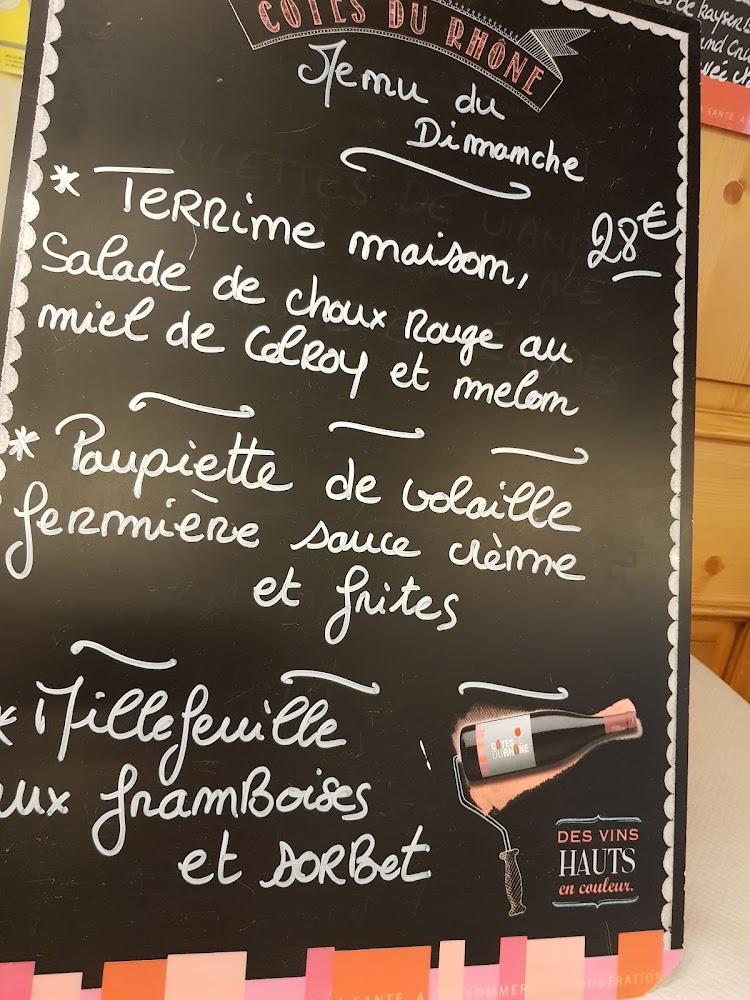 CÔTES DU RHÔNE
Menu du
Dimanche
28€
* Terrine maison,
Salade de choux Rouge au
miel de Colroy et melon
* Paupiette de volaille
fermière sauce crème
et frites
* Millefeuille
aux framboises
et sorbet
CÔTES
DU RHÔNE
DES VINS
HAUTS
en couleur.
LA SANTÉ. A CONSOMMER MODÉRATION
de kayser
SANTÉ. A